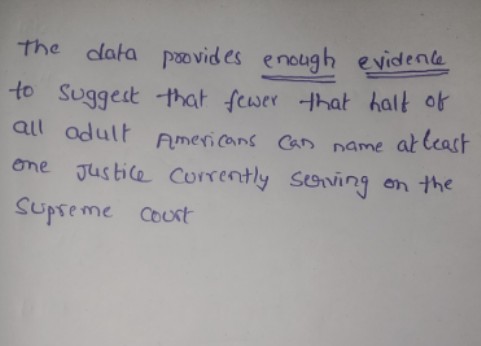 The data provides enough evidence
to suggest that fewer that half of
all adult Americans can name atleast
one Justice currently serving on the
Supreme Court